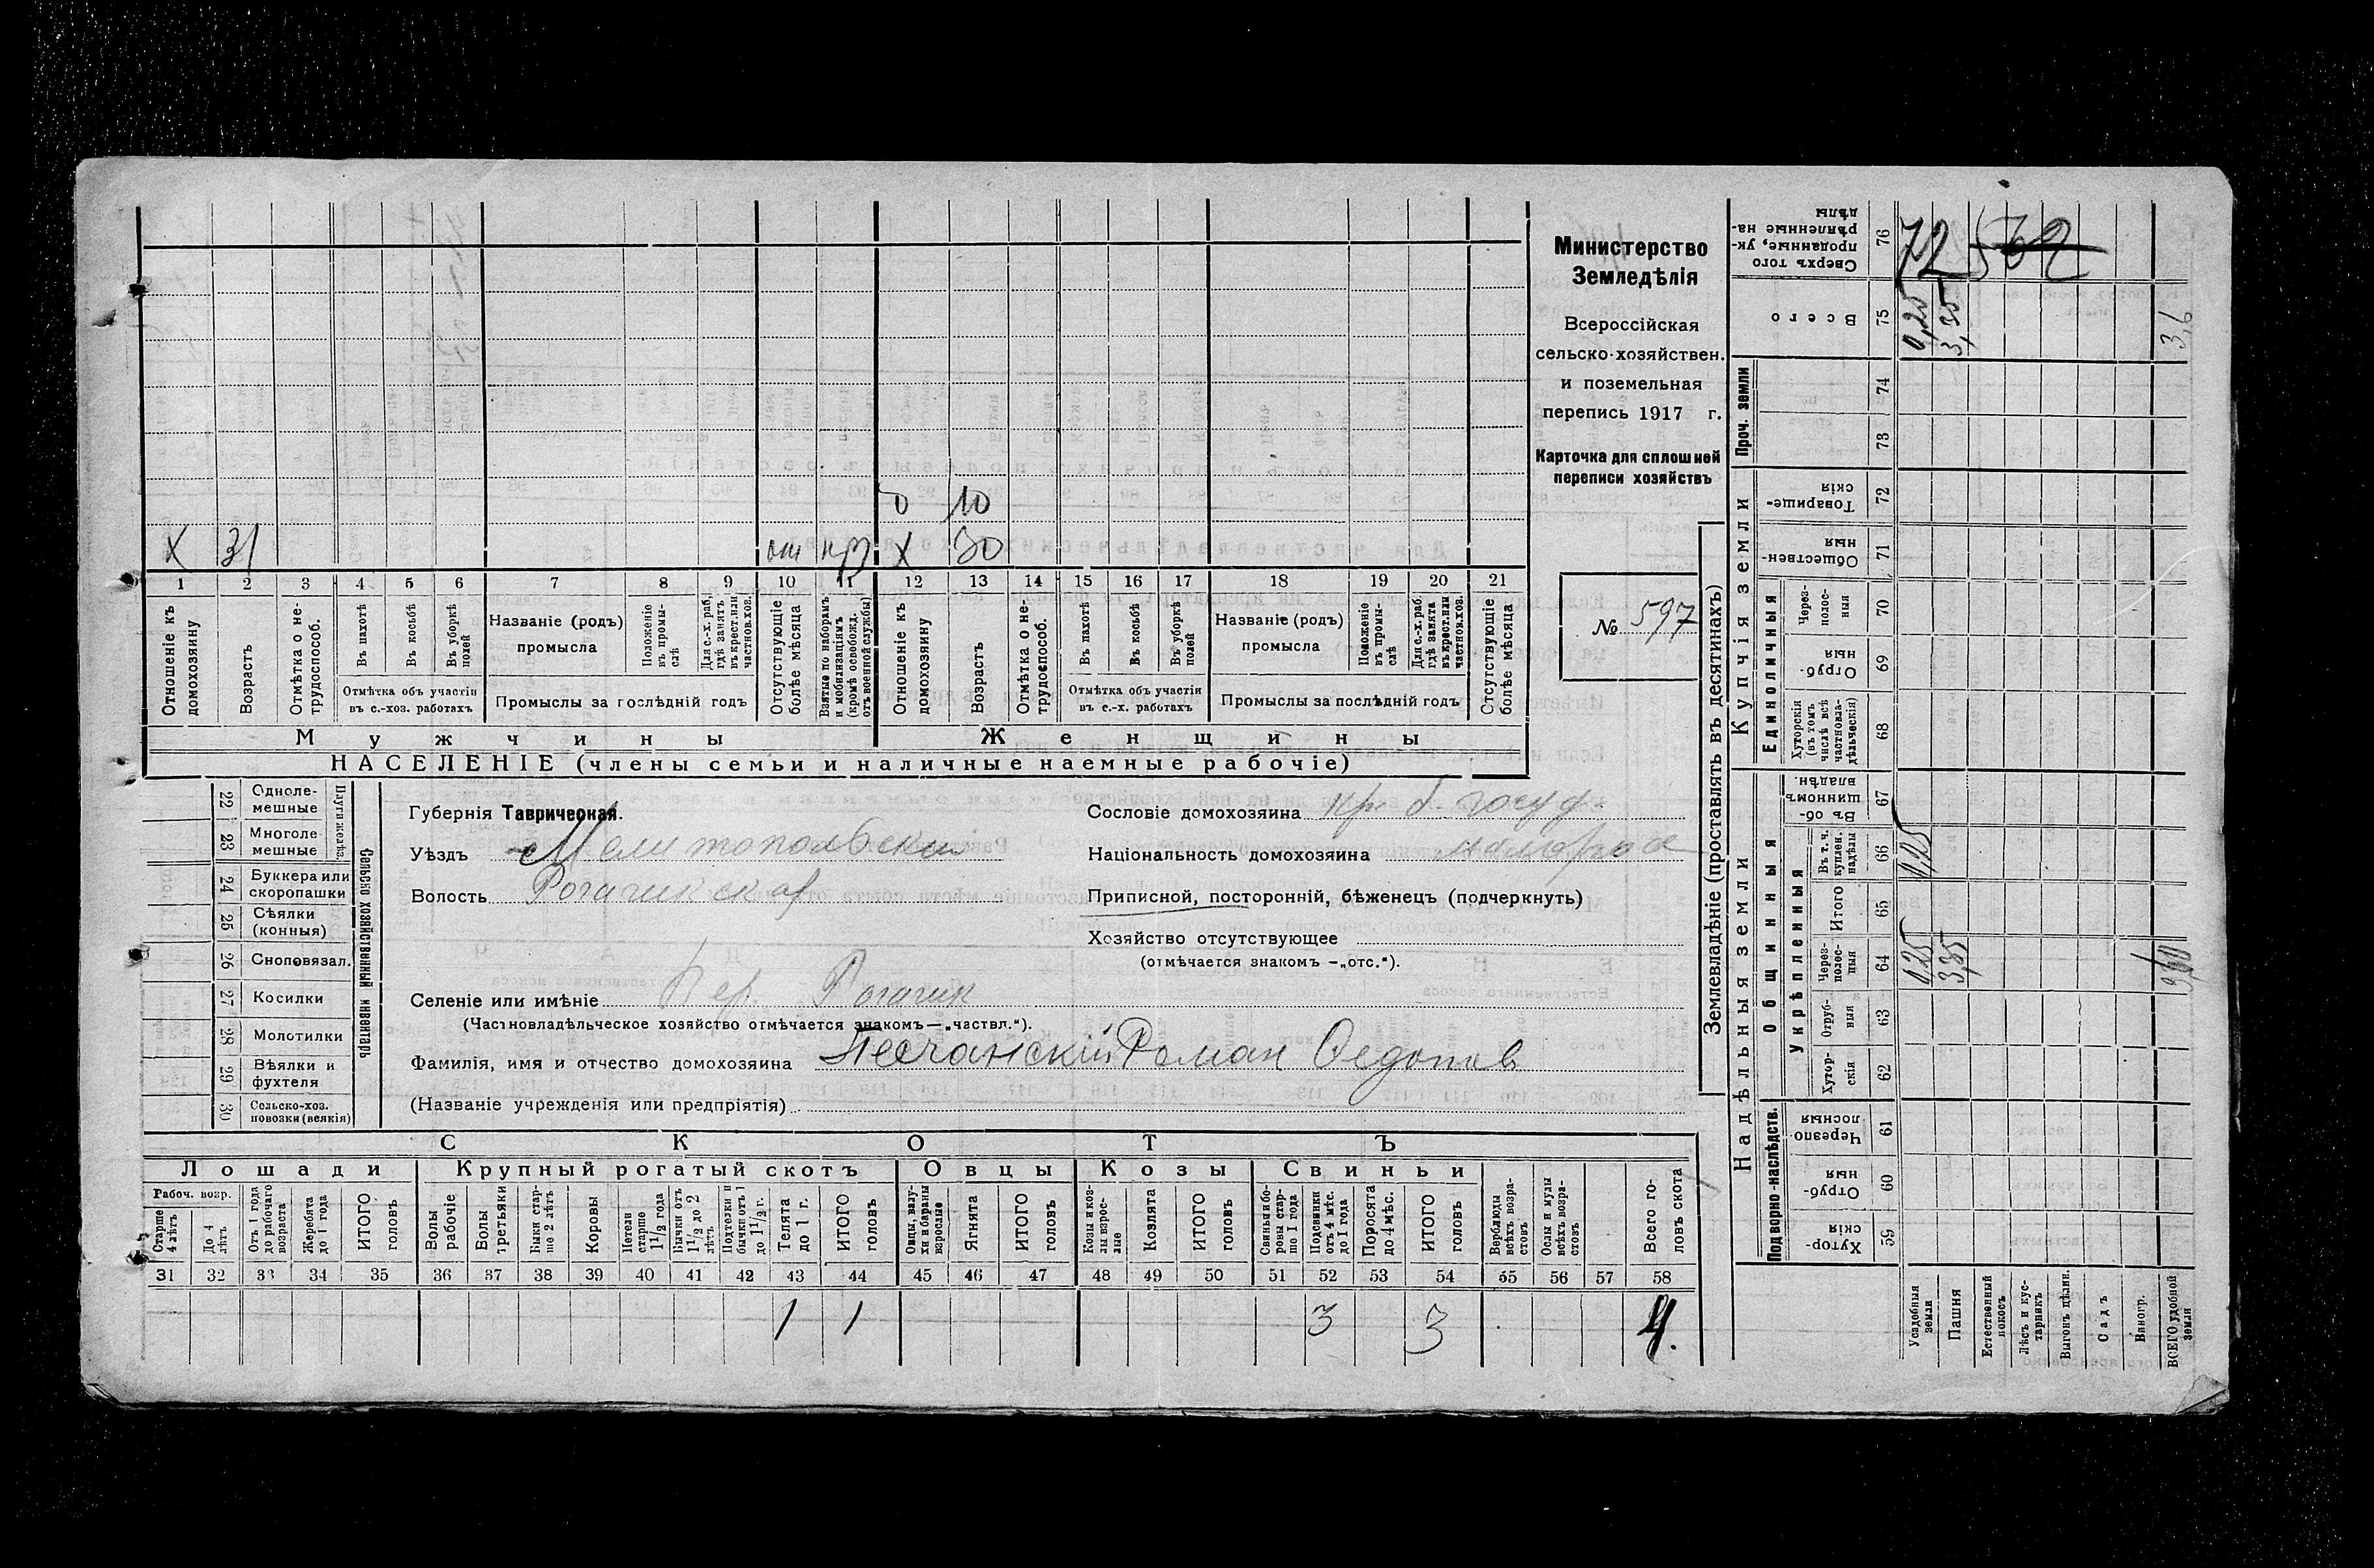 Х 31 от пр Х 30
0 10
1 2 3 4 5 6 7 8 9 10 11 12 13 14 15 16 17 18 19 20 21
Отношеніе къ домохозяину
Возрастъ
Отмѣтка о не-трудоспособ.
Въ пахотѣ
Въ косьбѣ
Въ уборкѣ полей
Отмѣтка объ участіи въ с.-хоз. работахъ
Названіе (родъ) промысла
Положеніе въ промы-слѣ
Для с.-х. раб. гдѣ занятъ въ крест. или частнов. хоз.
Промыслы за послѣдній годъ
Отсутствующіе болѣе мѣсяца
Взятые по наборамъ и мобилизаціямъ (кромѣ освобожд. отъ военной службы)
Отношеніе къ домохозяину
Возрастъ
Отмѣтка о не-трудоспособ.
Въ пахотѣ
Въ косьбѣ
Въ уборкѣ полей
Отмѣтка объ участіи въ с.-х. работахъ
Названіе (родъ) промысла
Положеніе въ промы-слѣ
Для с.-х. раб. гдѣ занята въ крест. или частнов. хоз.
Промыслы за послѣдній годъ
Отсутствующіе болѣе мѣсяца
Мужчины
Женщины
НАСЕЛЕНІЕ (члены семьи и наличные наемные рабочіе)
Министерство
Земледѣлія
Всероссійская
сельско-хозяйствен.
и поземельная
перепись 1917 г.
Карточка для сплошной
переписи хозяйствъ
№ 597
Сельско хозяйственный инвентарь
Плуги желѣз.
22 Одноле-мешные
23 Многоле-мешные
24 Буккера или скоропашки
25 Сѣялки (конныя)
26 Сноповязал.
27 Косилки
28 Молотилки
29 Вѣялки и фухтеля
30 Сельско-хоз. повозки (всякія)
Губернія Таврическая.
Уѣздъ Мелитопольскій
Волость Рогачикская
Селеніе или имѣніе Вер. Рогачик
(Частновладѣльческое хозяйство отмѣчается знакомъ—„частвл.“).
Фамилія, имя и отчество домохозяина Песчанскій Роман Федотов
(Названіе учрежденія или предпріятія)
Сословіе домохозяина кр. б. госуд.
Національность домохозяина малорос
Приписной, посторонній, бѣженецъ (подчеркнуть)
Хозяйство отсутствующее
(отмѣчается знакомъ —„отс.“).
СКОТЪ
Лошади
Крупный рогатый скотъ
Овцы
Козы
Свиньи
Рабоч. возр.
Старше 4 лѣтъ
До 4 лѣтъ
Отъ 1 года до рабочаго возраста
Жеребята до 1 года
ИТОГО головъ
Волы рабочіе
Волы третьяки
Быки стар-ше 2 лѣтъ
Коровы
Нетели старше 1 1/2 года
Бычки отъ 1 1/2 до 2 лѣтъ
Подтелки и бычки отъ 1 до 1 1/2 г.
Телята до 1 г.
ИТОГО головъ
Овцы, валу-хи и бараны взрослые
Ягнята
ИТОГО головъ
Козы и коз-лы взрос-лые
Козлята
ИТОГО головъ
Свиньи и бо-ровы стар-ше 1 года
Подсвинки отъ 4 мѣс. до 1 года
Поросята до 4 мѣс.
ИТОГО головъ
Верблюды всѣхъ возра-стовъ
Ослы и мулы всѣхъ возра-стовъ
Всего го-ловъ скота
31 32 33 34 35 36 37 38 39 40 41 42 43 44 45 46 47 48 49 50 51 52 53 54 55 56 57 58
1 1 3 3 4.
Землевладѣніе (проставлять въ десятинахъ)
Купчія земли
Надѣльныя земли
Сверхъ того проданные, ук-рѣпленные на-дѣлы 76 72
Всего 75 0,25 3,35 3,6
Проч. земли 74 73
Товарище-скія 72
Обществен-ныя 71
Единоличныя
Через-полос-ныя 70
Отруб-ныя 69
Хуторскія (въ томъ числѣ всѣ частновла-дѣльческія) 68
Общинныя
Въ об-щинномъ владѣн. 67
Укрѣпленныя
Въ т. ч. куплен. надѣлы 66 0,25
Итого 65
Через-полос-ныя 64 0,25 3,35 3,60
Отруб-ныя 63
Хутор-скія 62
Подворно-наслѣдств.
Черезпо-лосныя 61
Отруб-ныя 60
Хутор-скія 59
Усадебныя земли
Пашня
Естественный покосъ
Лѣсъ и кус-тарникъ
Выгонъ цѣлин.
Садъ
Виногр.
ВСЕГО удобной земли